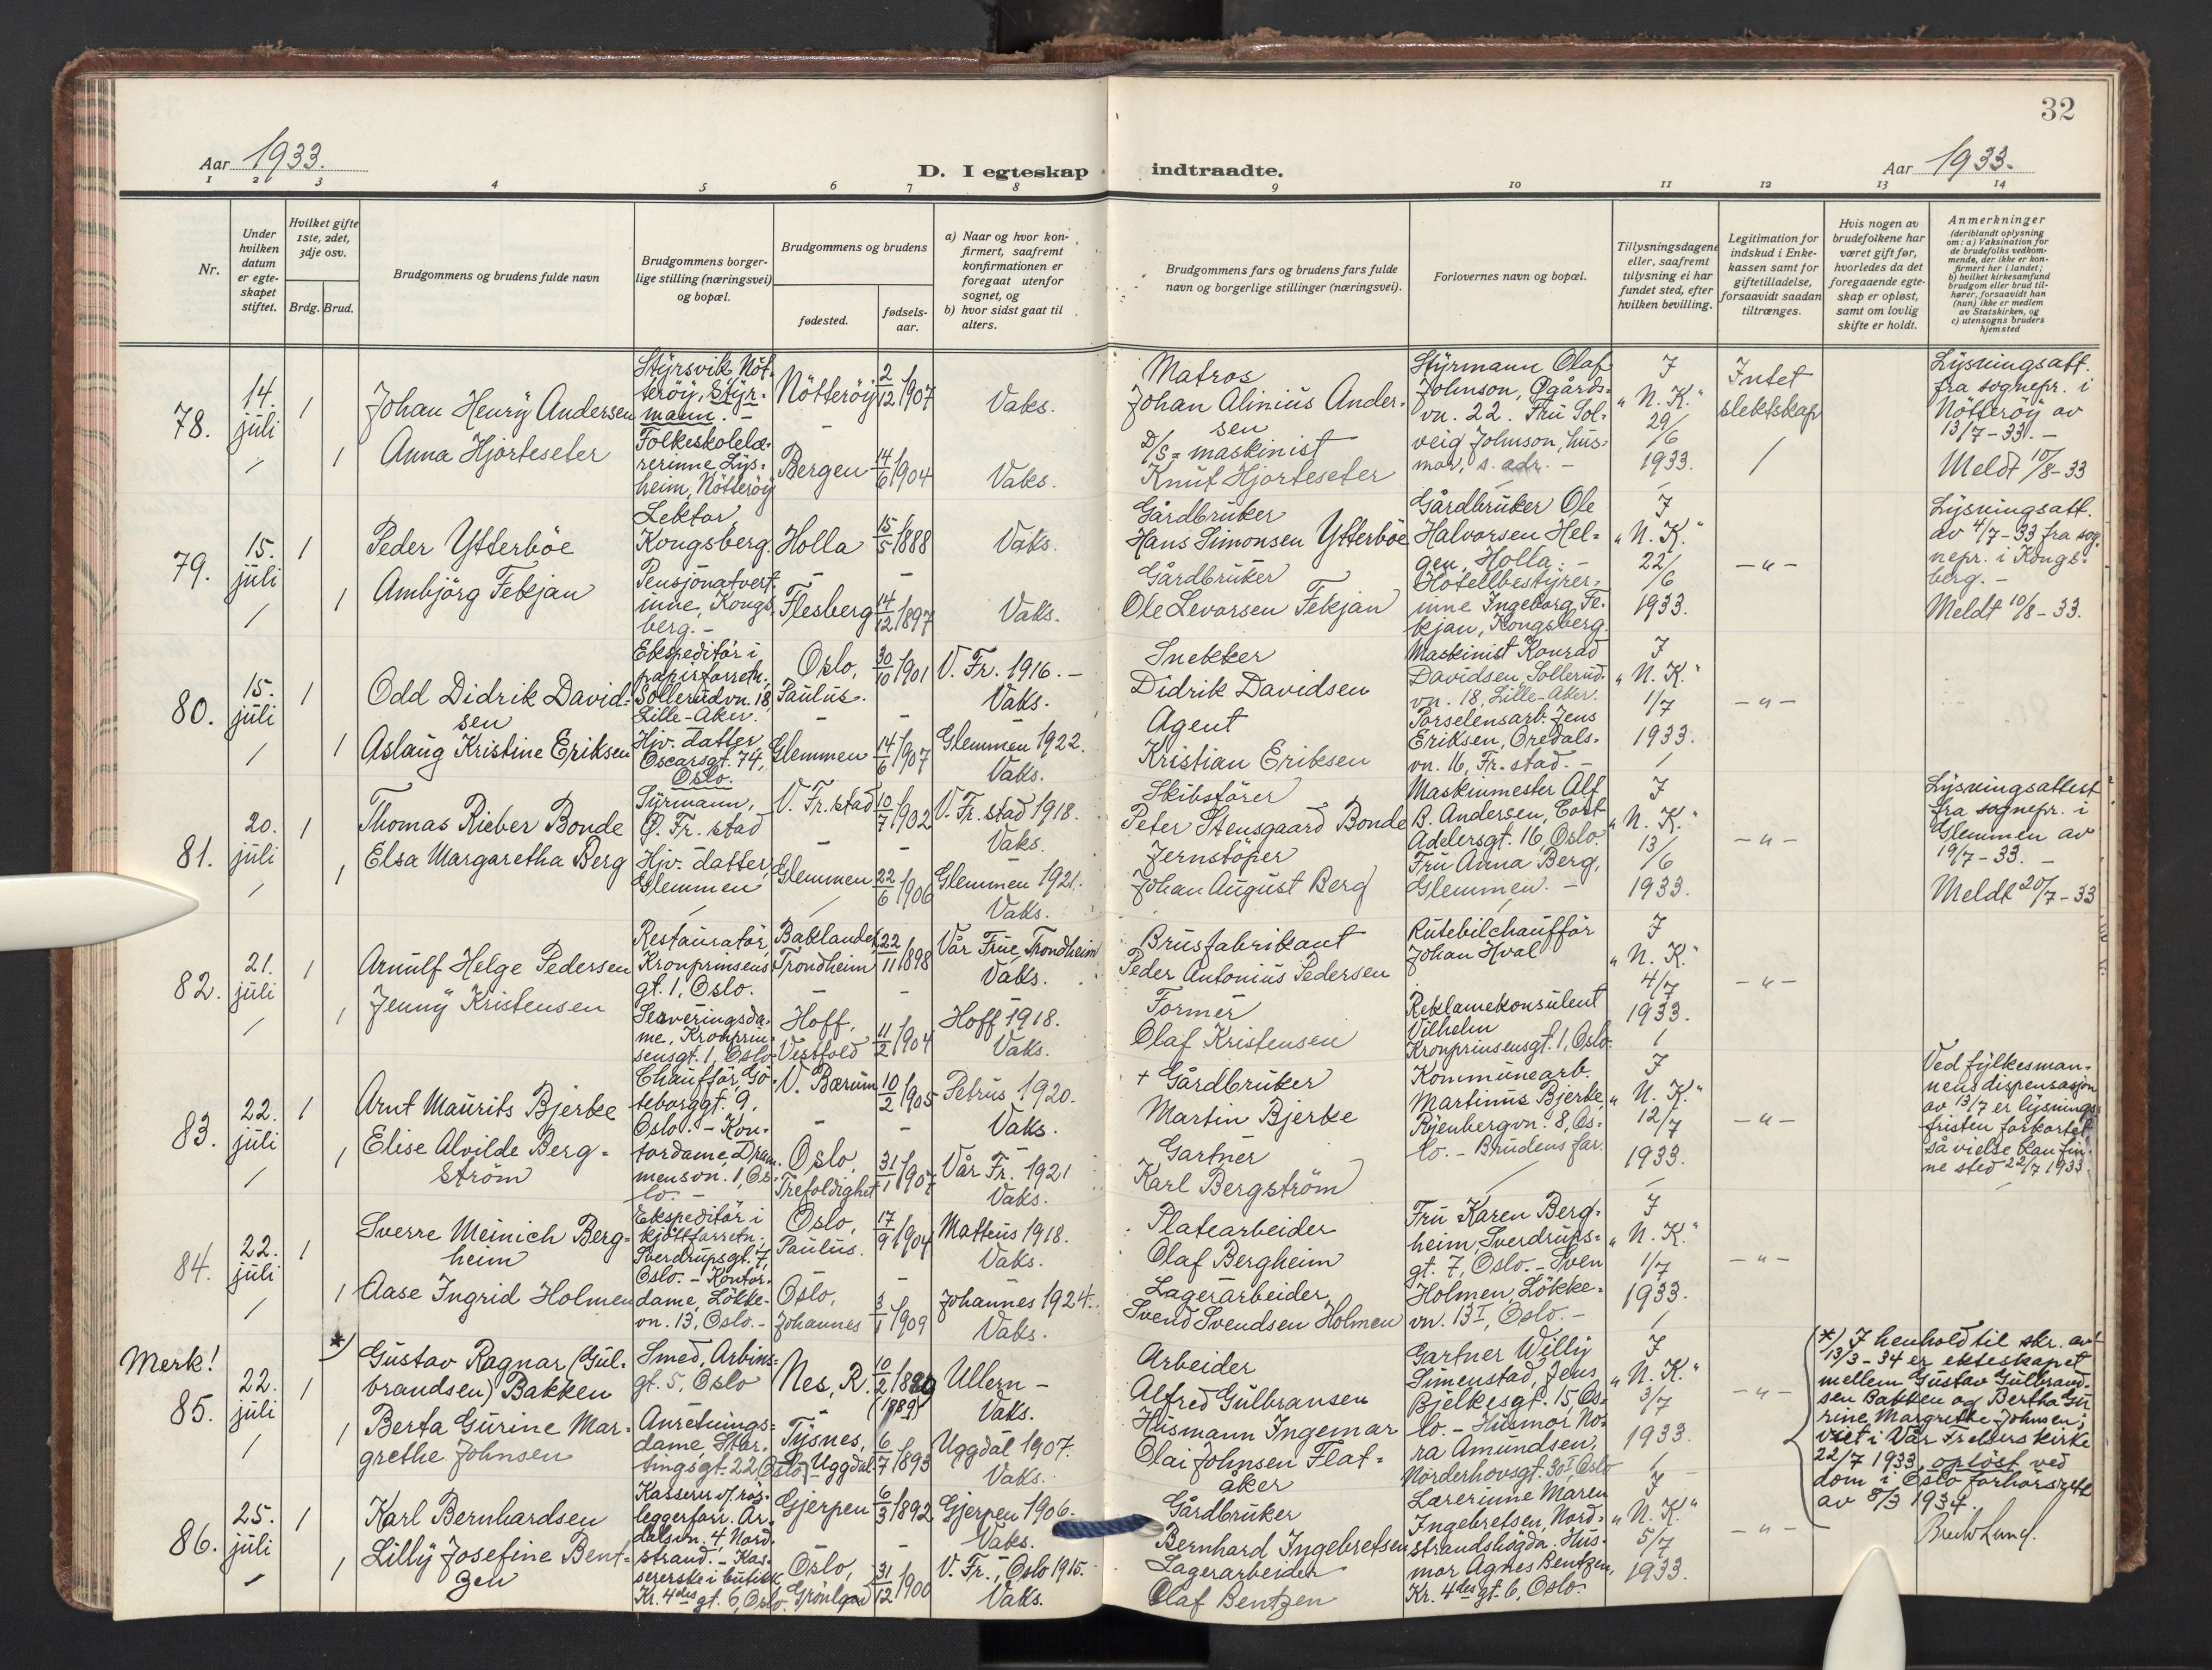 32
Aar 1933.
D. I egteskap indtraadte.
Aar 1933.
1 2 3 4 5 6 7 8 9 10 11 12 13 14
Nr.
Under hvilken datum er egteskapet stiftet.
Hvilket gifte 1ste, 2det, 3dje osv.
Brdg. Brud.
Brudgommens og brudens fulde navn
Brudgommens borgerlige stilling (næringsvei) og bopæl.
Brudgommens og brudens
fødested.
fødselsaar.
a) Naar og hvor konfirmert, saafremt konfirmationen er foregaat utenfor sognet, og
b) hvor sidst gaat til alters.
Brudgommens fars og brudens fars fulde navn og borgerlige stillinger (næringsvei).
Forlovernes navn og bopæl.
Tillysningsdagene eller, saafremt tillysning ei har fundet sted, efter hvilken bevilling.
Legitimation for indskud i Enkekassen samt for giftetilladelse, forsaavidt saadan tiltrænges.
Hvis nogen av brudefolkene har været gift før, hvorledes da det foregaaende egteskap er opløst, samt om lovlig skifte er holdt.
Anmerkninger
(deriblandt oplysning om: a) Vaksination for de brudefolks vedkommende, der ikke er konfirmert her i landet;
b) hvilket kirkesamfund brudgom eller brud tilhører, forsaavidt han (hun) ikke er medlem av Statskirken, og
c) utensogns bruders hjemsted
78. 14. juli 1
Johan Henry Andersen
Styrsvik, Nötteröy, Styrmann. -
Nötteröy 2/12 1907
Vaks.
Matros
Johan Alinius Andersen
Styrmann Olaf Johnson, Øgårdsvn. 22. Fru Solveig Johnson, husmor, s. adr. -
I "N. K." 29/6 1933.
Intet slektskap
Lysningsatt. fra sognepr. i Nötteröy av 13/7-33. -
Meldt 10/8-33
1 Anna Hjorteseter
Folkeskolelærerinne Lysheim, Nötteröy
Bergen 14/6 1904
Vaks.
D/S = maskinist
Knut Hjorteseter
79. 15. juli 1
Peder Ytterböe
Lektor, Kongsberg.
Holla 15/5 1888
Vaks.
Gårdbruker
Hans Simonsen Ytterböe
Gårdbruker Ole Halvorsen Helgen, Holla. -
Hotellbestyrerinne Ingeborg Fekjan, Kongsberg.
I "N. K." 22/6 1933.
- " -
Lysningsatt. av 4/7-33 fra sognepr. i Kongsberg. -
Meldt 10/8-33.
1 Ambjörg Fekjan
Pensjonatvertinne, Kongsberg. -
Flesberg 14/12 1897
Vaks.
Gårdbruker
Ole Levorsen Fekjan
80. 15. juli 1
Odd Didrik Davidsen
Ekspeditör i papirforretn., Sollerudvn. 18, Lille-Aker.
Oslo, Paulus. 30/10 1901
V. Fr. 1916. -
Vaks.
Snekker
Didrik Davidsen
Maskinist Konrad Davidsen, Sollerudvn. 18, Lille-Aker.
Porselensarb. Jens Eriksen, Oredalsvn. 16, Fr.stad. -
I "N. K." 1/7 1933.
- " -
1 Aslaug Kristine Eriksen
Hjv. datter Oscarsgt. 74, Oslo.
Glemmen 14/6 1907
Glemmen 1922.
Vaks.
Agent
Kristian Eriksen
81. 20. juli 1
Thomas Rieber Bonde
Syrmann, Ø. Fr. stad
V. Fr.stad 10/7 1902
V. Fr. stad 1918.
Vaks.
Skibsförer
Peter Stensgaard Bonde
Maskinmester Alf B. Andersen, Cort Adelersgt. 16, Oslo.
Fru Anna Berg, Glemmen. -
I "N. K." 13/6 1933.
- " -
Lysningsattest fra sognepr. i Glemmen av 19/7-33. -
Meldt 20/7-33
1 Elsa Margaretha Berg
Hjv. datter, Glemmen
Glemmen 22/6 1906
Glemmen 1921.
Vaks.
Jernstöper
Johan August Berg
82. 21. juli 1
Arnulf Helge Pedersen
Restauratör, Kronprinsensgt. 1, Oslo.
Baklandet, Trondheim 22/11 1898
Vår Frue, Trondheim
Vaks.
Brusfabrikant
Peder Antonius Pedersen
Rutebilchaufför Johan Hval
Reklamekonsulent Vilhelm
Kronprinsensgt. 1, Oslo.
I "N. K." 4/7 1933.
- " -
1 Jenny Kristensen
Serveringsdame, Kronprinsensgt. 1, Oslo
Hoff, Vestfold 11/2 1904
Hoff 1918.
Vaks.
Former
Olaf Kristensen
83. 22. juli 1
Arnt Maurits Bjerke
Chaufför, Göteborggt. 9, Oslo. -
V. Bærum 10/2 1905
Petrus 1920.
Vaks.
+ Gårdbruker
Martin Bjerke
Kommunearb. Martinus Bjerke, Ryenbergvn. 8, Oslo. - Brudens far.
I "N. K." 12/7 1933.
- " -
Ved fylkesmannens dispensasjon av 13/7 er lysningsfristen forkortet så vielse kan finne sted 22/7 1933.
1 Elise Alvilde Bergström
Kontordame, Drammensvn. 1, Oslo. -
Oslo, Trefoldighet 31/1 1907
Vår Fr. 1921
Vaks.
Gartner
Karl Bergström
84. 22. juli 1
Sverre Meinich Bergheim
Ekspeditör i kjöttforretn., Sverdrupsgt. 7, Oslo. -
Oslo, Paulus. 17/9 1904
Matteus 1918.
Vaks.
Platearbeider
Olaf Bergheim
Fru Karen Bergheim, Sverdrupsgt. 7, Oslo. - Sven Holmen, Lökkevn. 13 I, Oslo. -
I "N. K." 1/7 1933.
- " -
1 Aase Ingrid Holmen
Kontordame, Lökkevn. 13, Oslo. -
Oslo, Johannes 3/1 1909
Johannes 1924.
Vaks.
Lagerarbeider
Svend Svendsen Holmen
Merk!
85. 22. juli 1 *)
Gustav Ragnar (Gulbrandsen) Bakken
Smed, Arbinsgt. 5, Oslo
Nes, R. 10/2 1889 (1889)
Ullern -
Vaks.
Arbeider
Alfred Gulbransen
Gartner Willy Simenstad, Jens Bjelkesgt. 15, Oslo. - Husmor Nora Amundsen, Norderhovsgt. 30 I Oslo
I "N. K." 3/7 1933.
- " -
*) I henhold til skr. av 13/3-34 er ekteskapet mellem Gustav Gulbrandsen Bakken og Bertha Gurine Margrethe Johnsen, viet i Vår Frelsers kirke 22/7 1933, oplöst ved dom i Oslo forhörsrett av 8/3 1934.
1 Berta Gurine Margrethe Johnsen
Anretningsdame, Stortingsgt. 22, Oslo
Tysnes, Uggdal 6/7 1893
Uggdal 1907.
Vaks.
Husmann Ingemar Olai Johnsen Flatåker
86. 25. juli 1
Karl Bernhardsen
Kasserer v/ rörleggerforr. Ardalsvn. 4, Nordstrand. -
Gjerpen 6/3 1892
Gjerpen 1906.
Vaks.
Gårdbruker
Bernhard Ingebretsen
Lærerinne Maren Ingebretsen, Nordstrandshögda. Husmor Agnes Bentzen, Kr. 4des gt. 6, Oslo.
I "N. K." 5/7 1933.
- " -
1 Lilly Josefine Bentzen
Kassererske i butikk Kr. 4des gt. 6, Oslo.
Oslo, Grönland 31/12 1900
V. Fr., Oslo 1915.
Vaks.
Lagerarbeider
Olaf Bentzen